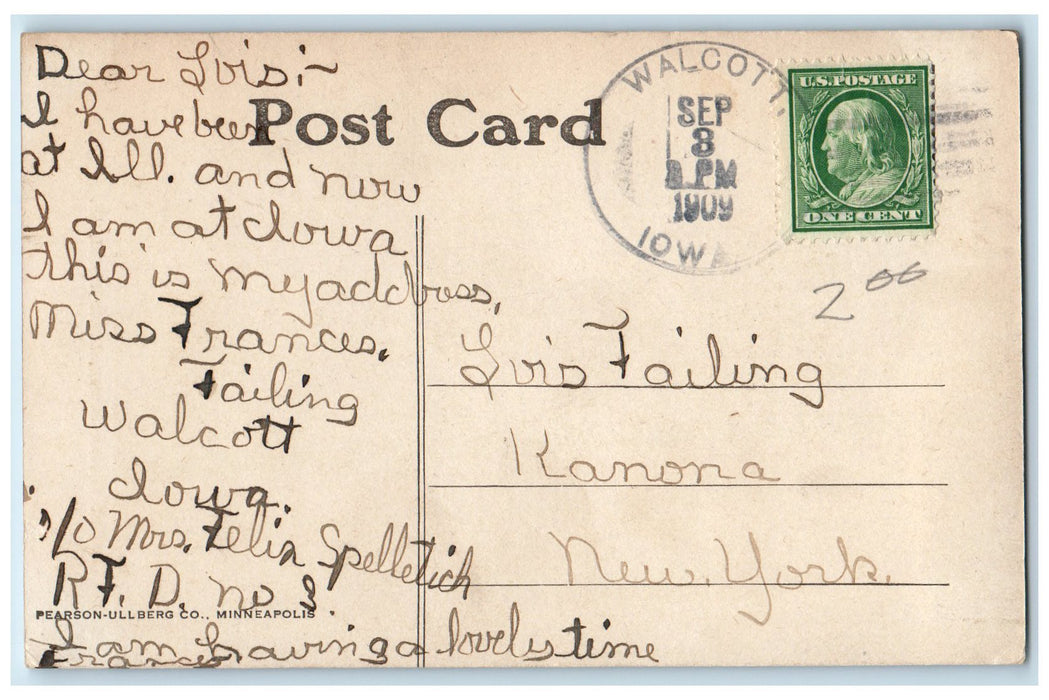 Dear Lois:-
I have been
at Ill. and now
I am at Iowa
this is my address,
Miss Frances,
Failing
Walcott
Iowa.
c/o Mrs. Felix Spelletich
R.F.D. no 3.
I am having a lovely time
Frances
Post Card
PEARSON-ULLBERG CO., MINNEAPOLIS
WALCOTT,
SEP
3
PM
1909
IOWA
U.S. POSTAGE
ONE CENT
2 00
Lois Failing
Kanona
New York.